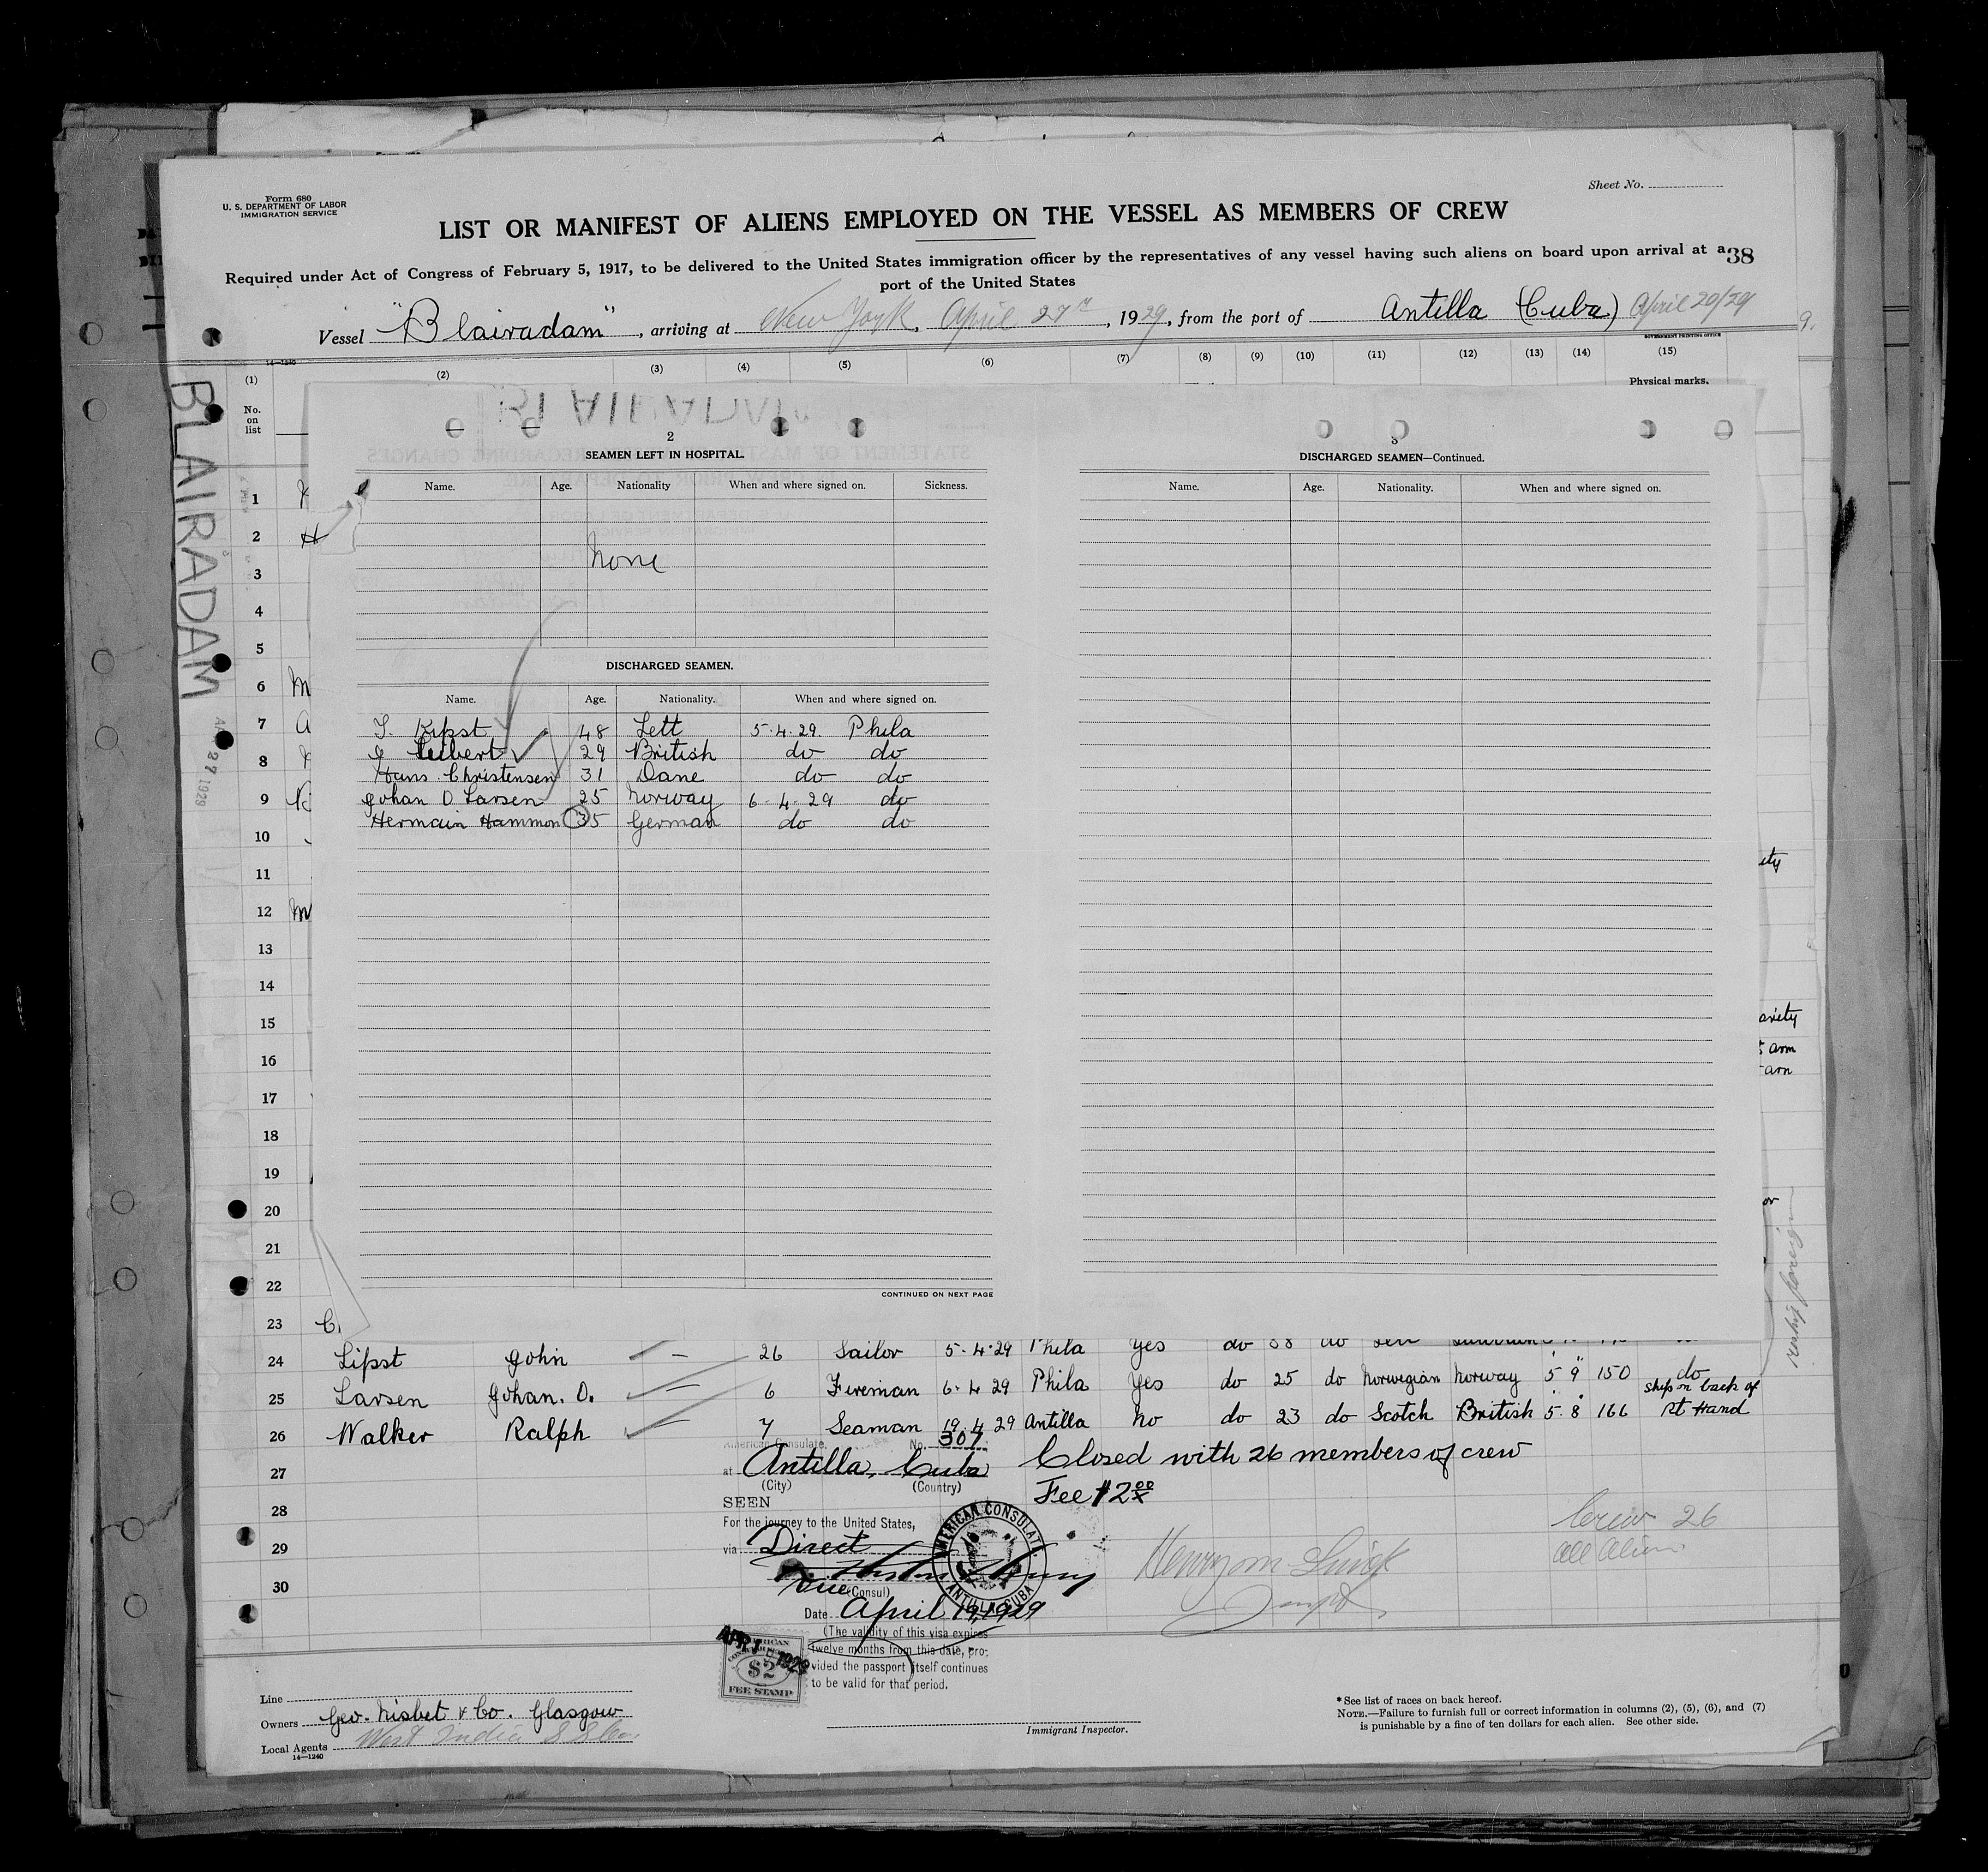 Form 680
U. S. DEPARTMENT OF LABOR
IMMIGRATION SERVICE
Sheet No.
LIST OR MANIFEST OF ALIENS EMPLOYED ON THE VESSEL AS MEMBERS OF CREW
Required under Act of Congress of February 5, 1917, to be delivered to the United States immigration officer by the representatives of any vessel having such aliens on board upon arrival at a
port of the United States
38
Vessel "Blairadam", arriving at New York, April 27th, 1929, from the port of Antilla (Cuba) April 20/29
9.
14—1240
GOVERNMENT PRINTING OFFICE
(1) (2) (3) (4) (5) (6) (7) (8) (9) (10) (11) (12) (13) (14) (15)
Physical marks.
No. on list
BLAIRADAM
1
2 H
3
4
5
6 M
7 a
8
9
10
11
12 M
13
14
15
16
17
18
19
20
21
22
23 C.
2
SEAMEN LEFT IN HOSPITAL.
Name. Age. Nationality When and where signed on. Sickness.
None
DISCHARGED SEAMEN.
Name. Age. Nationality. When and where signed on.
48 Lett 5.4.29 Phila
29 British do do
Hans. Christensen 31 Dane do do
Johan O Larsen 25 Norway 6.4.29 do
Hermain Hammon 35 German do do
CONTINUED ON NEXT PAGE
3
DISCHARGED SEAMEN—Continued.
Name. Age. Nationality. When and where signed on.
ety
ariety
t arm
arm
or
24 Lipst John — 26 Sailor 5.4.29 Phila Yes do 38 do Lett
25 Larsen Johan. O. — 6 Fireman 6.4.29 Phila Yes do 25 do Norwegian Norway 5 9" 150 do
ship on back of
26 Walker Ralph — 7 Seaman 19.4.29 Antilla No do 23 do Scotch British 5.8 166 Rt Hand
27
28
29
30
American Consulate, No. 307
at Antilla, Cuba
(City) (Country)
Closed with 26 members of crew
Fee $2.00
SEEN
For the journey to the United States,
via Direct
Vice (Consul)
AMERICAN CONSULATE
ANTILLA, CUBA
Date April 19, 1929
(The validity of this visa expires
twelve months from this date, pro-
vided the passport itself continues
to be valid for that period.
$2
FEE STAMP
Crew 26
all alien.
Line
Owners Geo. Nisbet & Co. Glasgow
Local Agents West India S S Co.
14—1240
Immigrant Inspector.
* See list of races on back hereof.
NOTE.—Failure to furnish full or correct information in columns (2), (5), (6), and (7)
is punishable by a fine of ten dollars for each alien. See other side.